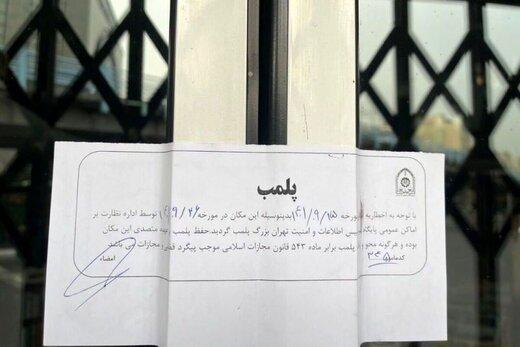 پلمب
با توجه به اخطاریه مورخه ۱۴۰۱/۹/۱۵ بدینوسیله این مکان در مورخه ۱۴۰۱/۹/۲۶ توسط اداره نظارت بر
اماکن عمومی پایگاه پلیس اطلاعات و امنیت تهران بزرگ پلمب گردید. حفظ پلمب بعهده متصدی این مکان
بوده و هرگونه محو یا پلمب برابر ماده ۵۴۳ قانون مجازات اسلامی موجب پیگرد قضایی مجازات می باشد.
کدمامور ۳۴۵ امضاء